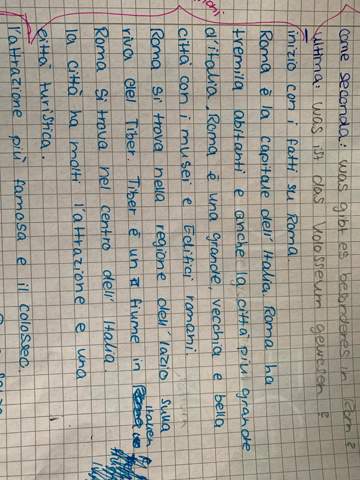 come seconda: was gibt es besonderes in Rom?
ultima: was ist das Kolosseum gewesen?
inizio con i fatti su Roma
Roma è la capitale dell'Italia. Roma ha
tremila abitanti e anche la città più grande
d'Italia. Roma è una grande, vecchia e bella
città con i musei e Edifici romani
Roma si trova nella regione dell'lazio sulla
riva del Tiber. Tiber è un fiume in Italien
Roma si trova nel centro dell'Italia
la città ha molti l'attrazione e una
città turistica.
l'attrazione più famosa e il colosseo